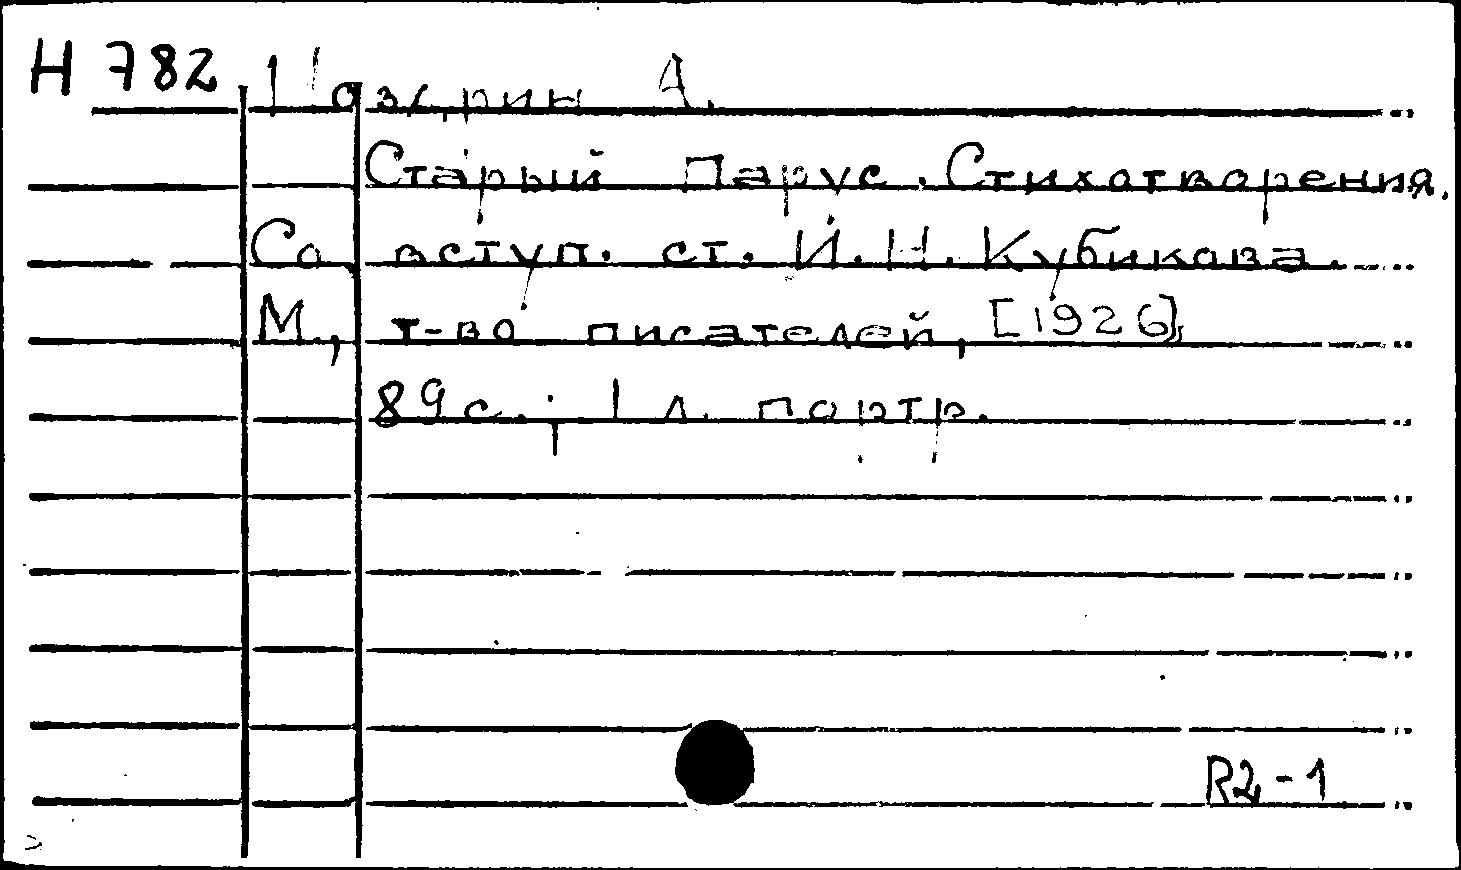 Н 782
Ноздрин А.
Старый Парус. Стихотворения.
Со вступ. ст. И. Н. Кубикова.
М., т-во писателей, [1926].
89 с.; 1 л. портр.
R2-1